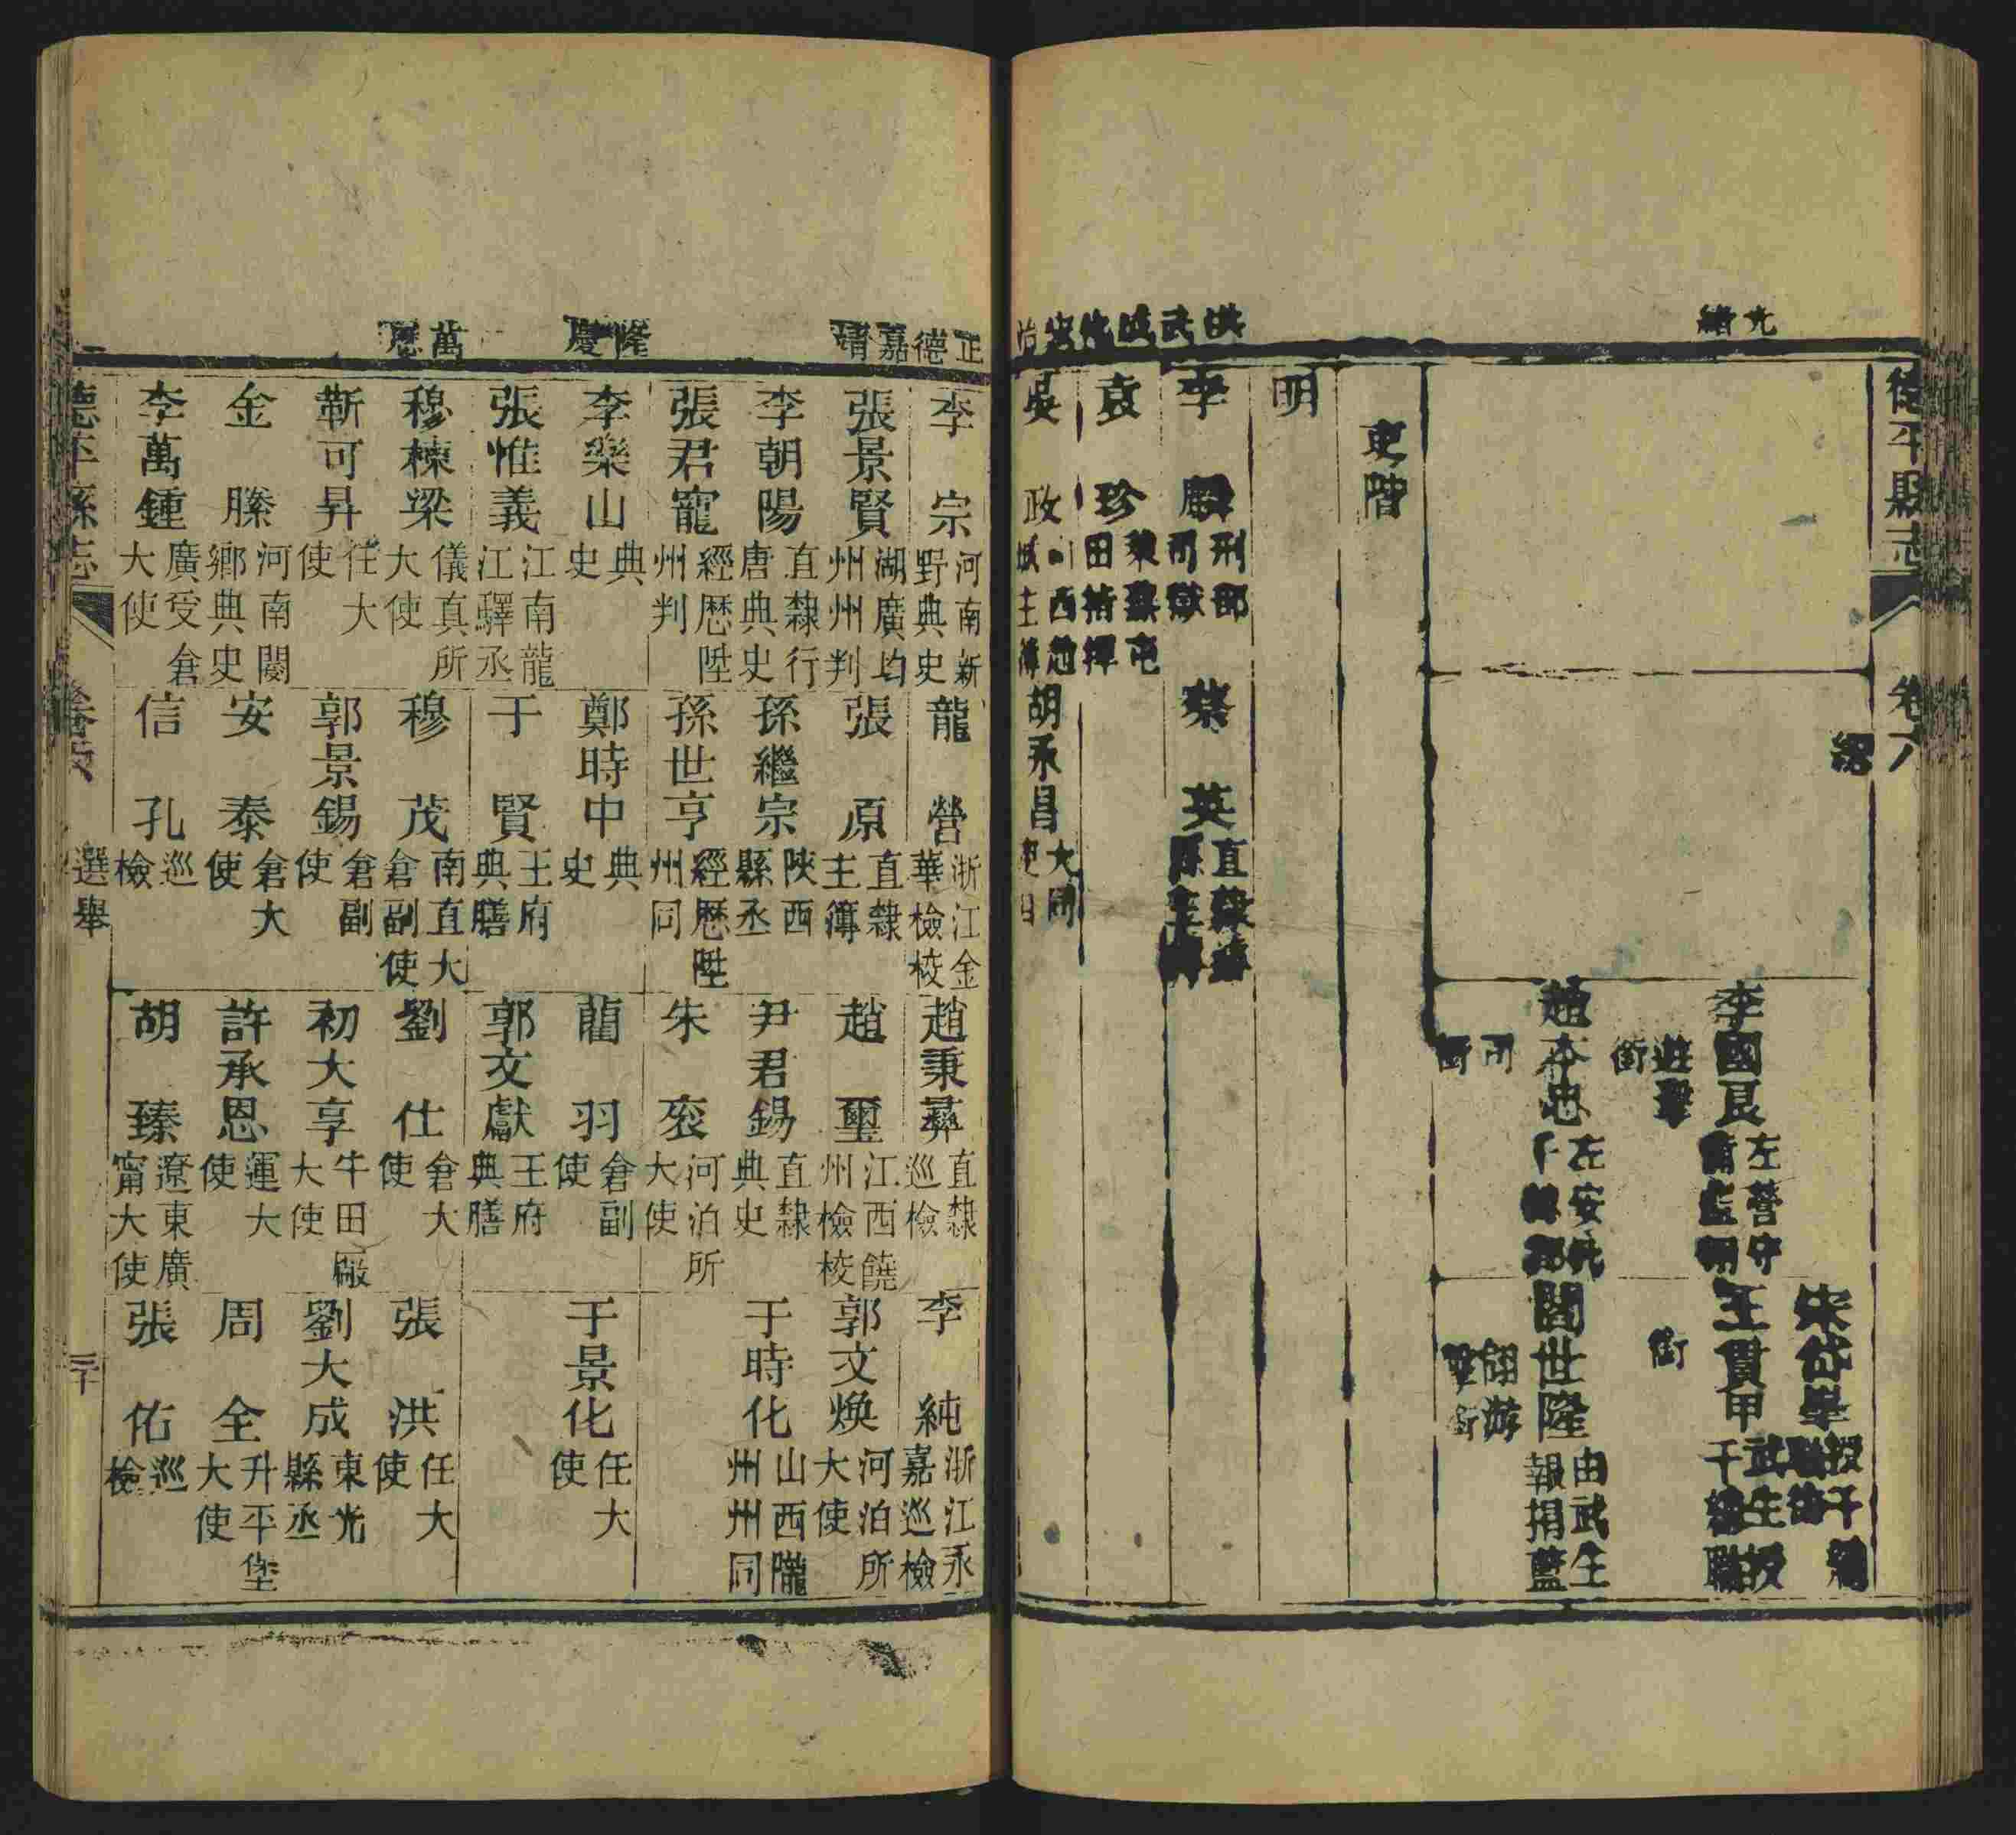 德平縣志
卷六
光緒
紹
宋岱舉 授千總職銜
李國良 左營守備盡朔
遊擊銜
王貫甲 武生授千總職
銜
趙 忠 左安
司銜
閻世隆 由武生報捐藍
翎游擊銜
吏階
明
洪武
李 刑部司獄
蔡 英 直隸 縣主簿
成化
袁 珍 屯田指揮
弘治
吳 政 山西趙城主簿
胡永昌 大同吏目
正德
李 宗 河南新野典史
龍 營 浙江金華檢校
趙秉彝 直隸巡檢
李 純 浙江永嘉巡檢
嘉靖
張景賢 湖廣均州州判
張 原 直隸主簿
趙 璽 江西饒州檢校
郭文煥 河泊所大使
李朝陽 直隸行唐典史
孫繼宗 陝西縣丞
尹君錫 直隸典史
于時化 山西隴州州同
張君寵 經歷陞州判
孫世亨 經歷陞州同
朱 袞 河泊所大使
隆慶
李樂山 典史
鄭時中 典史
藺 羽 倉副使
于景化 任大使
張惟義 江南龍江驛丞
于 賢 王府典膳
郭文獻 王府典膳
萬曆
穆棟梁 儀真所大使
穆 茂 南直大倉副使
劉 仕 倉大使
張 洪 任大使
靳可昇 任大使
郭景錫 倉副使
初大享 牛田廠大使
劉大成 東光縣丞
金 滕 河南閿鄉典史
安 泰 倉大使
許承恩 運大使
周 全 升平堡大使
李萬鍾 廣受倉大使
信 孔 巡檢
胡 臻 遼東廣甯大使
張 佑 巡檢
德平縣志
卷六
選舉
三十